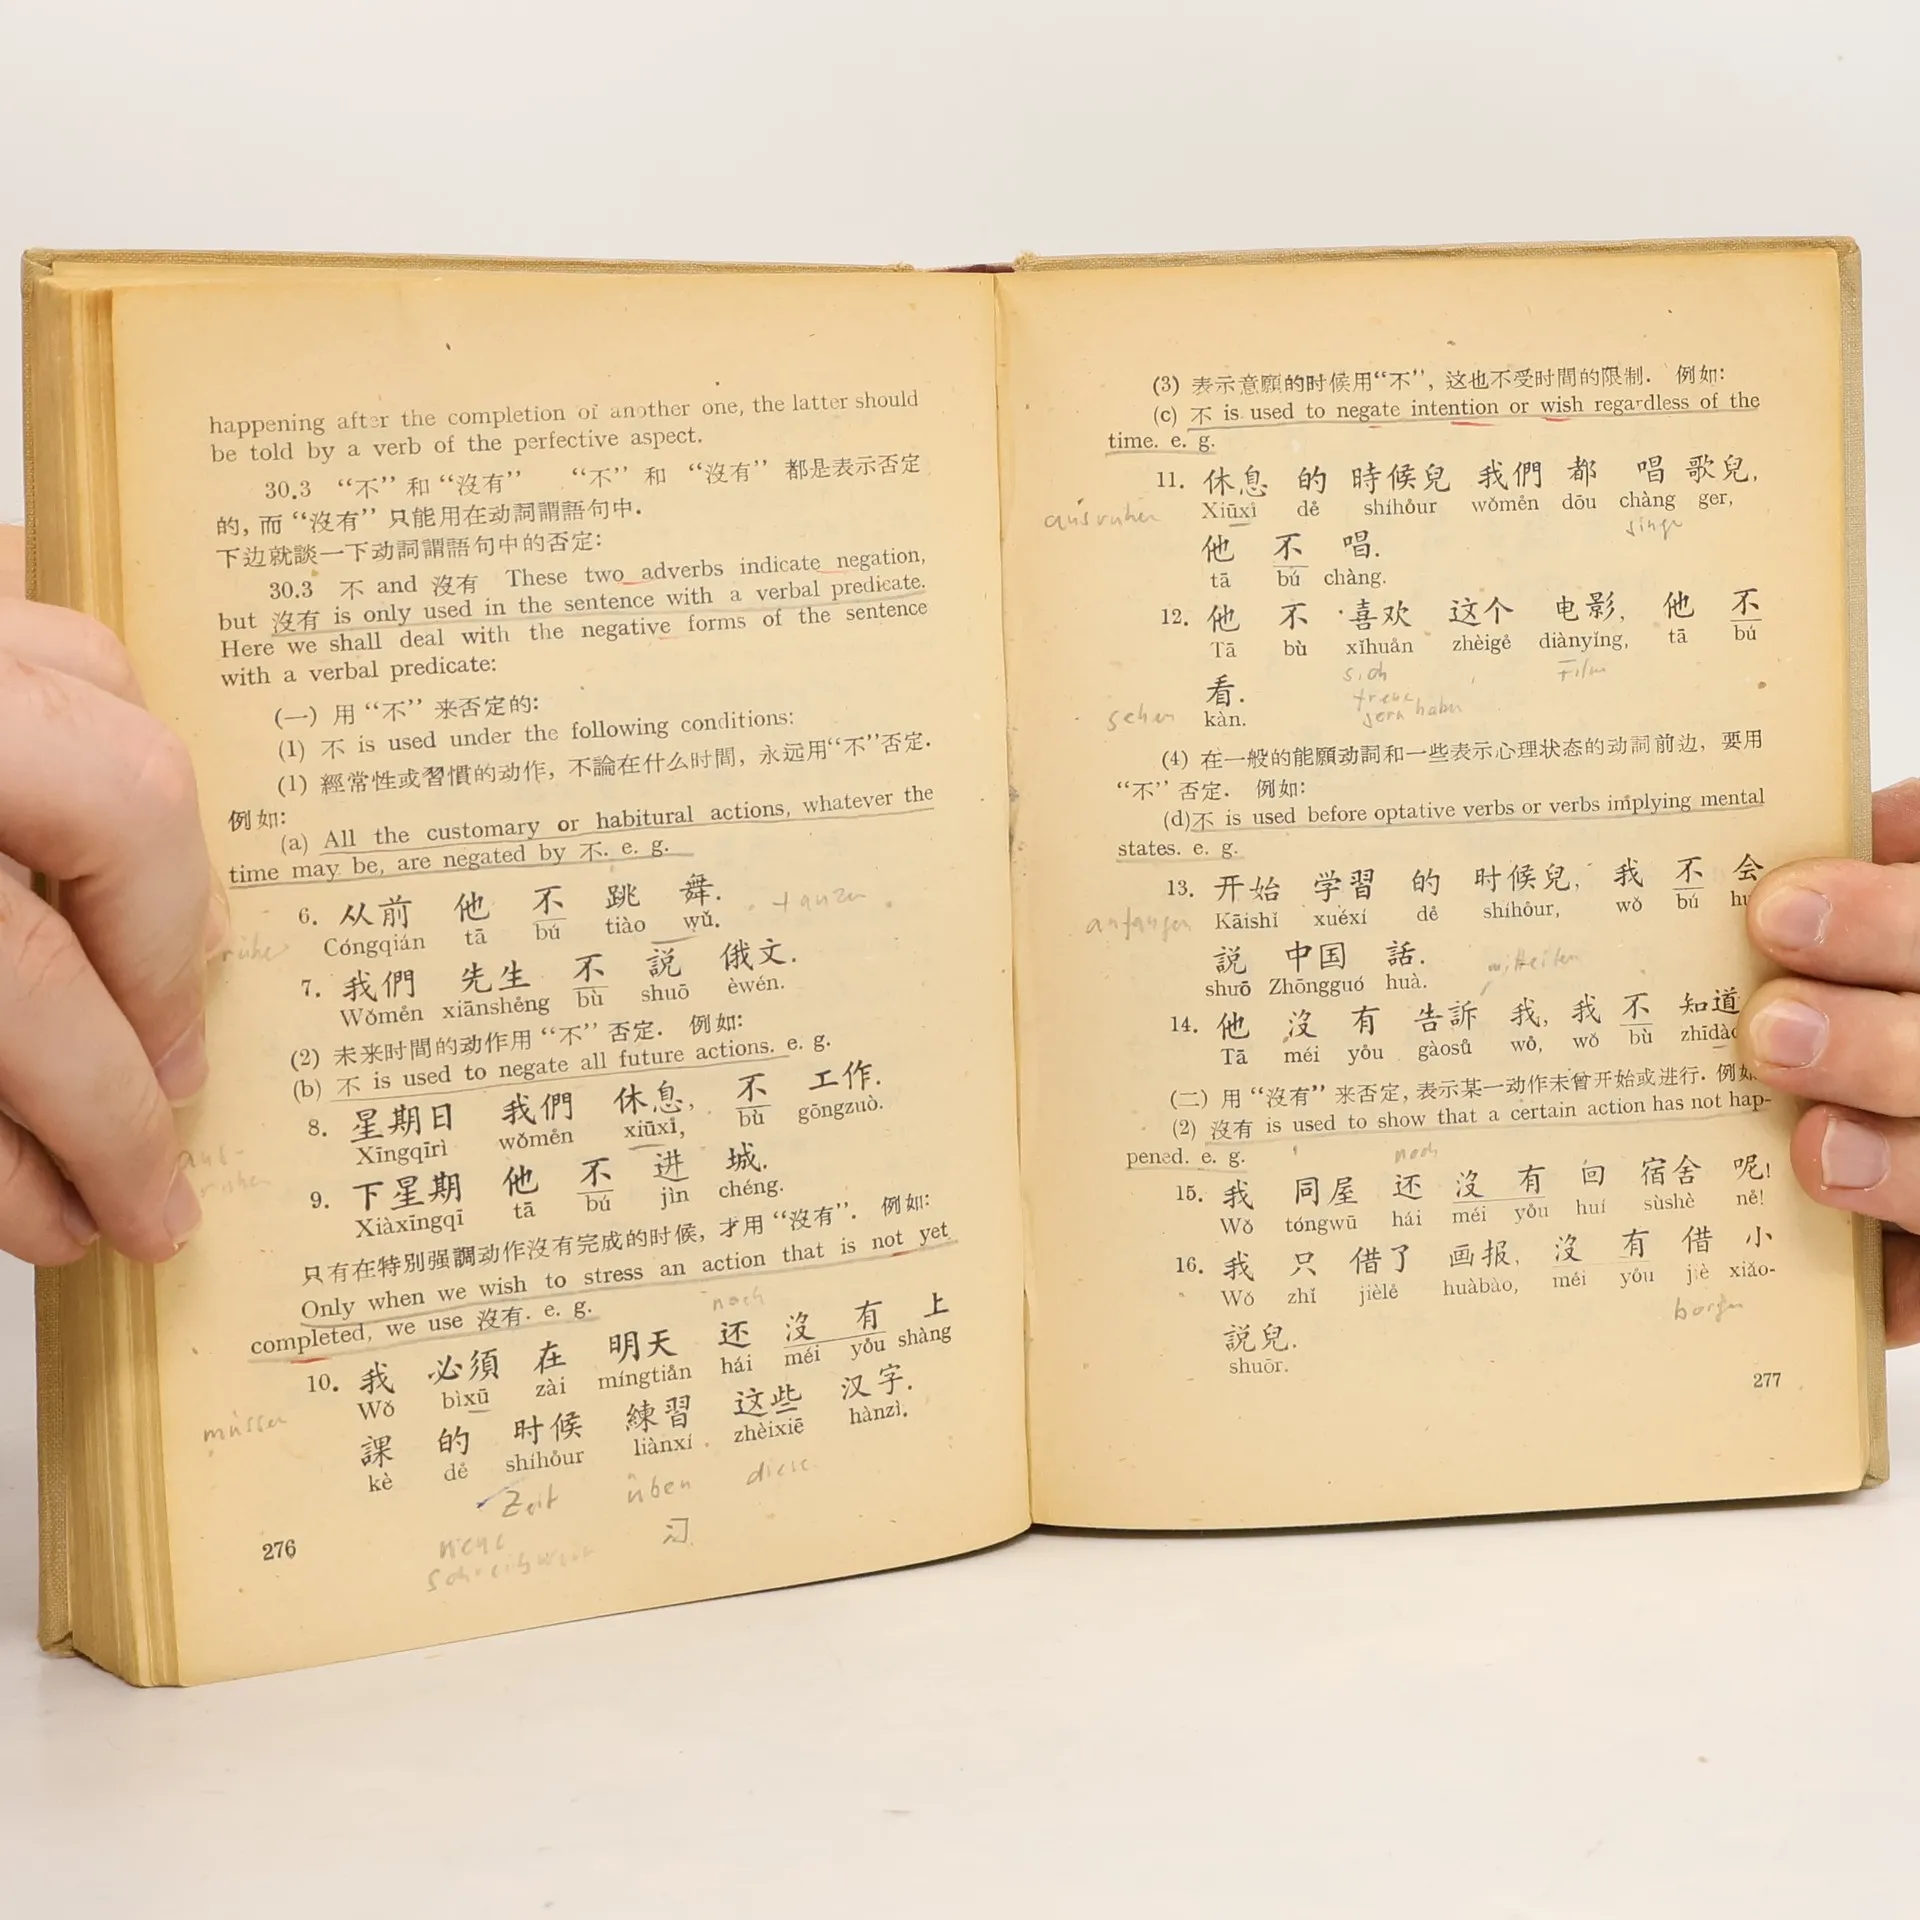 happening after the completion of another one, the latter should
be told by a verb of the perfective aspect.
30.3 “不”和“沒有” “不” 和 “沒有” 都是表示否定
的, 而 “沒有” 只能用在动詞謂語句中.
下边就談一下动詞謂語句中的否定:
30.3 不 and 沒有 These two adverbs indicate negation,
but 沒有 is only used in the sentence with a verbal predicate.
Here we shall deal with the negative forms of the sentence
with a verbal predicate:
(一) 用 “不” 来否定的:
(1) 不 is used under the following conditions:
(1) 經常性或習慣的动作, 不論在什么时間, 永远用“不”否定.
例如:
(a) All the customary or habitural actions, whatever the
time may be, are negated by 不. e. g.
6. 从前 他 不 跳 舞.
Cóngqián tā bú tiào wǔ. tanzen
7. 我們 先生 不 說 俄文.
Wǒmên xiānshêng bù shuō èwén.
(2) 未来时間的动作用 “不” 否定. 例如:
(b) 不 is used to negate all future actions. e. g.
8. 星期日 我們 休息, 不 工作.
Xīngqīrì wǒmên xiūxi, bù gōngzuò.
9. 下星期 他 不 进 城.
Xiàxīngqī tā bú jìn chéng.
只有在特別强調动作沒有完成的时候, 才用 “沒有”. 例如:
Only when we wish to stress an action that is not yet
completed, we use 沒有. e. g.
noch
10. 我 必須 在 明天 还 沒 有 上
Wǒ bìxū zài míngtiān hái méi yǒu shàng
müssen
課 的 时候 練習 这些 汉字.
kè dê shíhòur liànxí zhèixiē hànzì.
Zeit üben diese
neue 习
276
(3) 表示意願的时候用“不”, 这也不受时間的限制. 例如:
(c) 不 is used to negate intention or wish regardless of the
time. e. g.
11. 休息 的 時候兒 我們 都 唱 歌兒,
ausruhen Xiūxi dê shíhòur wǒmên dōu chàng ger,
他 不 唱.
tā bú chàng.
12. 他 不 喜欢 这个 电影, 他 不
Tā bù xǐhuān zhèigê diànyǐng, tā bú
sich Film
看.
sehen kàn.
(4) 在一般的能願动詞和一些表示心理状态的动詞前边, 要用
“不” 否定. 例如:
(d)不 is used before optative verbs or verbs implying mental
states. e. g.
13. 开始 学習 的 时候兒, 我 不 会
anfangen Kāishǐ xuéxí dê shíhòur, wǒ bú
說 中国 話.
shuō Zhōngguó huà.
mitteilen
14. 他 沒 有 告訴 我, 我 不 知道
Tā méi yǒu gàosù wǒ, wǒ bù
(二) 用 “沒有” 来否定, 表示某一动作未曾开始或进行. 例如
(2) 沒有 is used to show that a certain action has not hap-
pened. e. g.
noch
15. 我 同屋 还 沒 有 回 宿舍 呢!
Wǒ tóngwū hái méi yǒu huí sùshè nê!
16. 我 只 借了 画报, 沒 有 借 小
Wǒ zhǐ jièlê huàbào, méi yǒu jiè xiǎo-
borgen
說兒.
shuōr.
277